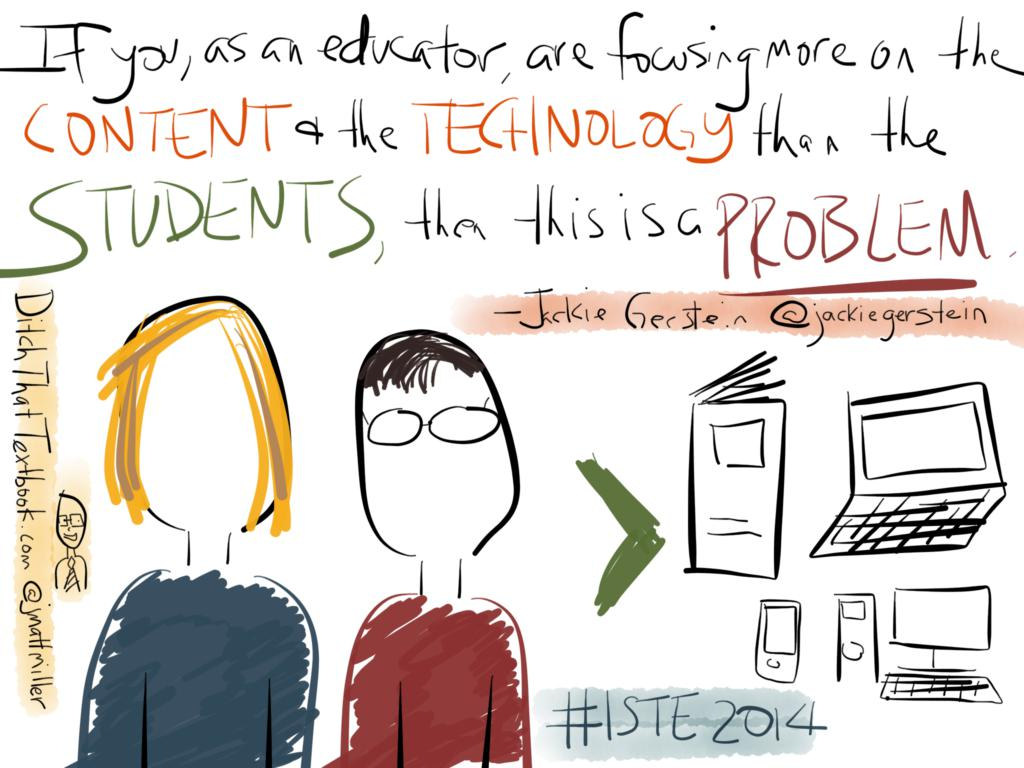 If you, as an educator, are focusing more on the
CONTENT & the TECHNOLOGY than the
STUDENTS, then this is a PROBLEM.
- Jackie Gerstein @jackiegerstein
DitchThatTextbook.com @jmattmiller
#ISTE2014